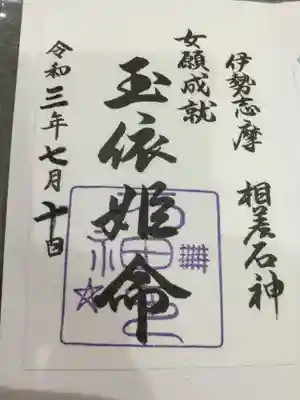 伊勢志摩 相差石神
女願成就
玉依姫命
令和三年七月十日
石神